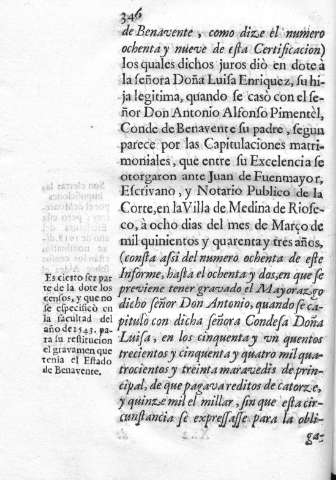 346
de Benavente, como dize el numero
ochenta y nueve de esta Certificacion)
los quales dichos juros diò en dote à
la señora Doña Luisa Enriquez, su hi-
ja legitima, quando se casò con el se-
ñor Don Antonio Alfonso Pimentèl,
Conde de Benavente su padre, segun
parece por las Capitulaciones matri-
moniales, que entre su Excelencia se
otorgaron ante Juan de Fuenmayor,
Escrivano, y Notario Publico de la
Corte, en la Villa de Medina de Riose-
co, à ocho dias del mes de Março de
mil quinientos y quarenta y tres años,
(consta assi del numero ochenta de este
Informe, hasta el ochenta y dos, en que se
previene tener gravado el Mayorazgo
dicho señor Don Antonio, quando se ca-
pitulo con dicha señora Condesa Doña
Luisa, en los cinquenta y un quentos
trecientos y cinquenta y quatro mil qua-
trocientos y treinta maravedis de prin-
cipal, de que pagava reditos de catorze,
y quinze mil el millar, sin que esta cir-
cunstancia se expressasse para la obli-
ga-
Es cierto ser par
te de la dote los
censos, y que no
se especificò en
la facultad del
año de 1543. pa-
ra su restitucion
el gravamen que
tenia el Estado
de Benavente.